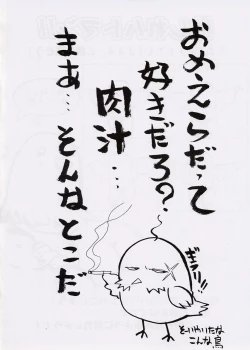 おめえらだって
好きだろ?
肉汁…
まあ…そんなとこだ
ギラリ!!
そーいやいたな
こんな鳥